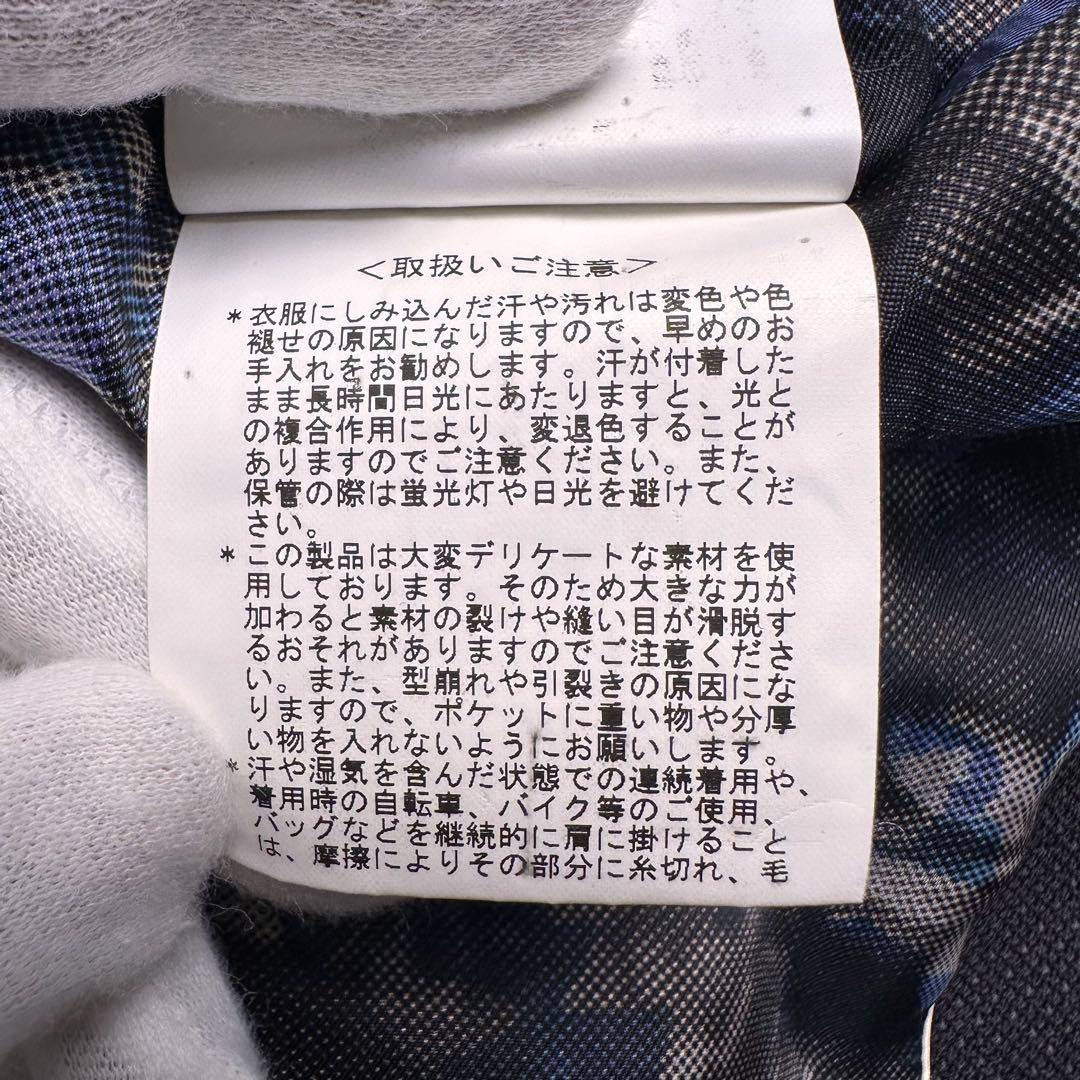 ＜取扱いご注意＞
＊衣服にしみ込んだ汗や汚れは変色や色
褪せの原因になりますので、早めのお
手入れをお勧めします。汗が付着した
まま長時間日光にあたりますと、光と
の複合作用により、変退色することが
ありますのでご注意ください。また、
保管の際は蛍光灯や日光を避けてくだ
さい。
＊この製品は大変デリケートな素材を使
用しております。そのため大きな力が
加わると素材の裂けや縫い目が滑脱す
るおそれがありますのでご注意くださ
い。また、型崩れや引裂きの原因にな
りますので、ポケットに重い物や分厚
い物を入れないようにお願いします。
＊汗や湿気を含んだ状態での連続着用や、
着用時の自転車、バイク等のご使用、
バッグなどを継続的に肩に掛けること
は、摩擦によりその部分に糸切れ、毛